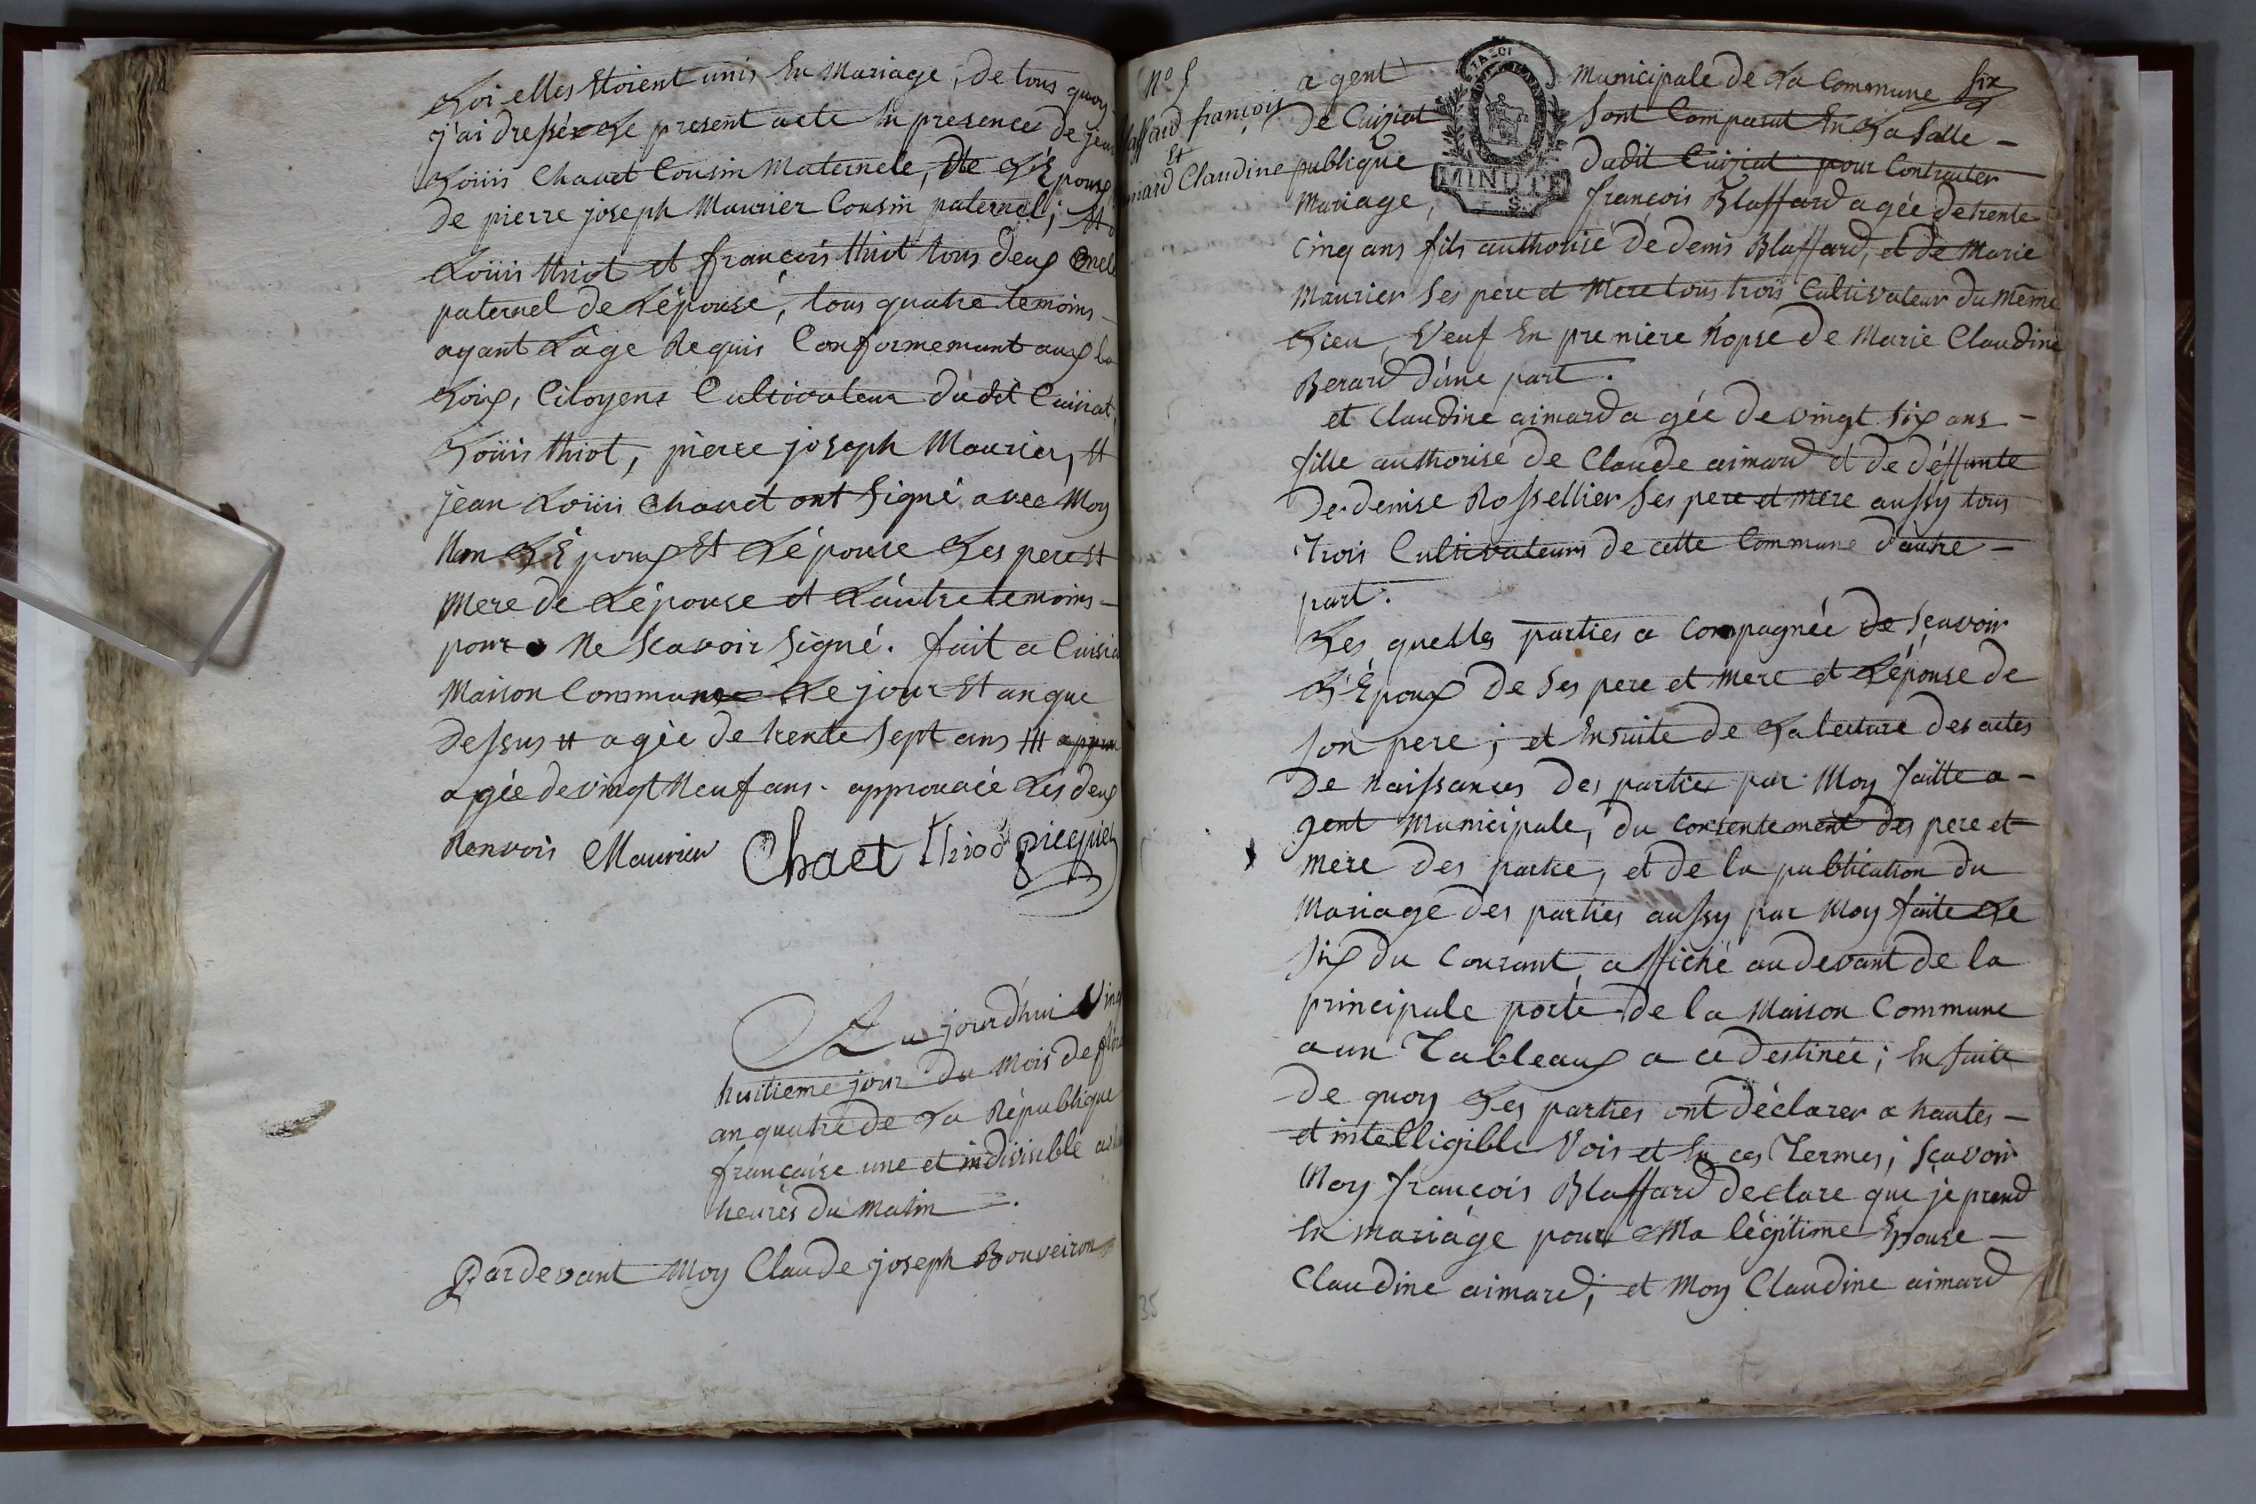 Loi elles Etoient unis En Mariage, de tous quoy
j'ai dressé Le present acte En presence de jean
Loüis Chavet Cousin Maternele, de L'Epoux
de pierre joseph Maurier Cousin paternel; Et
Loüis thiot et françois thiot tous deux oncle
paternel de L'épouse, tous quatre temoins
ayant L'age Requis Conformement aux
Loix, Citoyens Cultivateur dudit Cuisiat,
Loüis thiot, pierre joseph Maurier, Et
jean Loüis Chavet ont Signé avec Moy
Non L'Epoux Et L'épouse Les pere Et
Mere de L'épouse et L'autre temoins
pour Ne Scavoir Signé. fait a Cuisia
Maison Commune Le jour Et an que
dessus # agée de trente Sept ans
agée de vingt Neuf ans. approuvée Les deux
Renvois Maurier Chaet thiod
Au jourd'hui Ving
huitieme jour du Mois de flo
an quatre de La République
française une et indivisible
heures du Matin
Pardevant Moy Claude joseph Bouveiron
N° 5
Blaffard françois
Et
aimard Claudine
agent Municipale de La Commune Six
De Cuisiat Sont Comparut En La Salle
publique dudit Cuisiat pour Contracter
MINUTE
Mariage, françois Blaffard agée de trente
Cinq ans fils authorisé de denis Blaffard, et de Marie
Maurier Ses pere et Mere tous trois Cultivateur du Même
Lieu, Veuf En premiere Nopse de Marie Claudine
Berard d'une part.
et Claudine aimard agée de vingt Six ans
fille authorisé de Claude aimard et de déffunte
De denise Rossellier Ses pere et mere aussy tous
Trois Cultivateurs de cette Commune d'autre
part.
Les quelles parties acompagnée de Sçavoir
L'Epoux de Ses pere et Mere et L'épouse de
Son pere; et Ensuite de La lecture des actes
De Naissances des parties par Moy faitte a
gent Municipale, du consentement des pere et
mere des partie, et de la publication du
Mariage des parties aussy par Moy faite Le
Six du Courant, affiché au devant de la
principale porte de la Maison Commune
a un Tableaux a ce destinée; En Suite
De quoy Les parties ont déclarer a hautes
et intelligible Vois et En ces Termes; Sçavoir
Moy françois Blaffard declare que je prend
En mariage pour Ma légitime Epouse
Claudine aimard; et Moy Claudine aimard
35